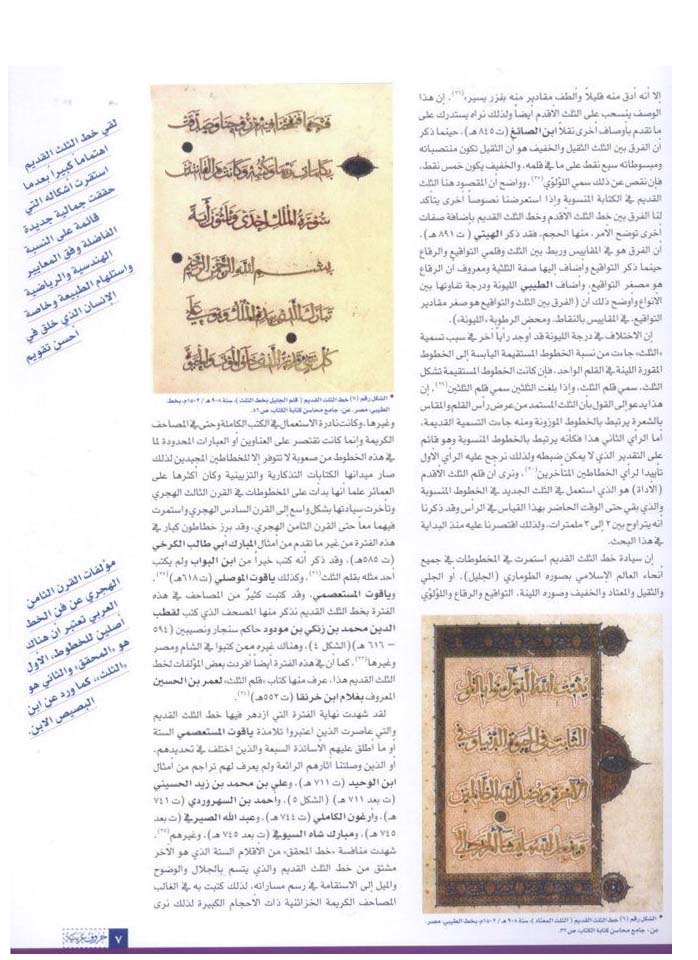 إلا أنه أدق منه قليلاً وألطف مقادير منه بقزر يسير»(٢٦). إن هذا
الوصف ينسحب على الثلث الأقدم أيضاً ولذلك نراه يستدرك على
ما تقدم بأوصاف أخرى نقلاً ابن الصائغ (ت ٨٤٥ هـ)، حينما ذكر
أن الفرق بين الثلث الثقيل والخفيف هو ان الثقيل تكون منتصباته
ومبسوطاته سبع نقط على ما في قلمه، والخفيف يكون خمس نقط،
فإن نقص عن ذلك سمي اللؤلؤي(٢٧). وواضح أن المقصود هنا الثلث
القديم في الكتابة المنسوبة وإذا استعرضنا نصوصاً أخرى يتأكد
لنا الفرق بين خط الثلث الأقدم وخط الثلث القديم بإضافة صفات
أخرى توضح الأمر، منها الحجم، فقد ذكر الهيتي (ت ٨٩١ هـ)،
أن الفرق هو في المقاييس وربط بين الثلث وقلمي التواقيع والرقاع
حينما ذكر التواقيع وأضاف إليها صفة الثلثية ومعروف ان الرقاع
هو مصغر التواقيع، وأضاف الطيبي الليونة ودرجة تفاوتها بين
الأنواع وأوضح ذلك أن (الفرق بين الثلث والتواقيع هو صغر مقادير
التواقيع، في المقاييس بالنقاط، ومحض الرطوبة «الليونة»).
إن الاختلاف في درجة الليونة قد أوجد رأياً آخر في سبب تسمية
«الثلث» جاءت من نسبة الخطوط المستقيمة اليابسة إلى الخطوط
المقورة اللينة في القلم الواحد، فإن كانت الخطوط المستقيمة تشكل
الثلث، سمي قلم الثلث، وإذا بلغت الثلثين سمي قلم الثلثين(٢٩). إن
هذا يدعو إلى القول بأن الثلث المستمد من عرض رأس القلم والمقاس
بالشعرة يرتبط بالخطوط الموزونة ومنه جاءت التسمية القديمة،
أما الرأي الثاني هذا فكأنه يرتبط بالخطوط المنسوبة وهو قائم
على التقدير الذي لا يمكن ضبطه ولذلك نرجح عليه الرأي الأول
تأييدا لرأي الخطاطين المتأخرين(٣٠). ونرى أن قلم الثلث الأقدم
(الأداة) هو الذي استعمل في الثلث الجديد في الخطوط المنسوبة
والذي بقي حتى الوقت الحاضر بهذا القياس في الرأس وقد ذكرنا
أنه يتراوح بين ٢ إلى ٣ ملمترات، ولذلك اقتصرنا عليه منذ البداية
في هذا البحث.
إن سيادة خط الثلث القديم استمرت في المخطوطات في جميع
أنحاء العالم الإسلامي بصوره الطوماري (الجليل)، أو الجلي
والثقيل والمعتاد والخفيف وصوره اللينة، التواقيع والرقاع واللؤلؤي
يثبت الله الذين آمنوا بالقول
الثابت في الحيوة الدنيا وفي
الآخرة ويضل الله الظالمين
ويفعل الله ما يشاء
• الشكل رقم (٦) خط الثلث القديم ( الثلث المعتاد )، سنة ٩٠٨ هـ / ١٥٠٢م، بخط الطيبي، مصر.
عن، جامع محاسن كتابة الكتاب، ص ٣٢.
فنفخنا فيه من روحنا وصدقت
بكلمات ربها وكتبه وكانت من القانتين
سورة الملك احدى وثلثون آية
بسم الله الرحمن الرحيم
تبارك الذي بيده الملك وهو على
كل شيء قدير الذي خلق الموت والحيوة
• الشكل رقم (٧) خط الثلث القديم ( قلم الجليل بخط الثلث )، سنة ٩٠٨ هـ / ١٥٠٢م، بخط
الطيبي، مصر. عن، جامع محاسن كتابة الكتاب ص ٥٦.
وغيرها، وكانت نادرة الاستعمال في الكتب الكاملة وحتى في المصاحف
الكريمة وإنما كانت تقتصر على العناوين أو العبارات المحدودة لما
في هذه الخطوط من صعوبة لا تتوفر إلا للخطاطين المجيدين لذلك
صار ميدانها الكتابات التذكارية والتزيينية وكان أكثرها على
العمائر علما أنها بدأت على المخطوطات في القرن الثالث الهجري
وتأخرت سيادتها بشكل واسع إلى القرن السادس الهجري واستمرت
فيهما معاً حتى القرن الثامن الهجري. وقد برز خطاطون كبار في
هذه الفترة من غير ما تقدم من أمثال المبارك أبي طالب الكرخي
(ت ٥٨٥هـ)، وقد ذكر أنه كتب خيراً من ابن البواب ولم يكتب
أحد مثله بقلم الثلث(٣١)، وكذلك ياقوت الموصلي (ت ٦١٨هـ)(٣٢)،
وياقوت المستعصمي، وقد كتبت كثيرٌ من المصاحف في هذه
الفترة بخط الثلث القديم نذكر منها المصحف الذي كتب لقطب
الدين محمد بن زنكي بن مودود حاكم سنجار ونصيبين (٥٩٤
– ٦١٦ هـ) (الشكل ٤)، وهناك غيره ممن كتبوا في الشام ومصر
وغيرها(٣٣)، كما أن في هذه الفترة أيضاً أفردت بعض المؤلفات لخط
الثلث القديم هذا، عرف منها كتاب «قلم الثلث» لعمر بن الحسين
المعروف بغلام ابن خرنقا (ت ٥٥٢هـ)(٣٤).
لقد شهدت نهاية الفترة التي ازدهر فيها خط الثلث القديم
والتي عاصرت الذين اعتبروا تلامذة ياقوت المستعصمي الستة
أو ما أطلق عليهم الاساتذة السبعة والذين اختلف في تحديدهم،
أو الذين وصلتنا آثارهم الرائعة ولم يعرف لهم تراجم من أمثال
ابن الوحيد (ت ٧١١ هـ)، وعلي بن محمد بن زيد الحسيني
(ت بعد ٧١١ هـ) (الشكل ٥)، وأحمد بن السهروردي (ت ٧٤١
هـ)، وأرغون الكاملي (ت ٧٤٤ هـ)، وعبد الله الصيرفي (ت بعد
٧٤٥ هـ)، ومبارك شاه السيوفي (ت بعد ٧٤٥ هـ)، وغيرهم(٣٥).
شهدت منافسة «خط المحقق» من الأقلام الستة الذي هو الآخر
مشتق من خط الثلث القديم والذي يتسم بالجلال والوضوح
والميل إلى الاستقامة في رسم مساراته، لذلك كتبت به في الغالب
المصاحف الكريمة الخزائنية ذات الاحجام الكبيرة لذلك نرى
لقي خط الثلث القديم
اهتماما كبيرا بعدما
استقرت أشكاله التي
حققت جمالية جديدة
قائمة على النسبة
الفاضلة وفق المعايير
الهندسية والرياضية
واستلهام الطبيعة وخاصة
الانسان الذي خلق في
أحسن تقويم
مؤلفات القرن الثامن
الهجري عن فن الخط
العربي تعتبر أن هناك
أصلين للخطوط، الأول
هو «المحقق»، والثاني هو
«الثلث»، كما ورد عن ابن
البصيص الابن.
٧
حروف عربية